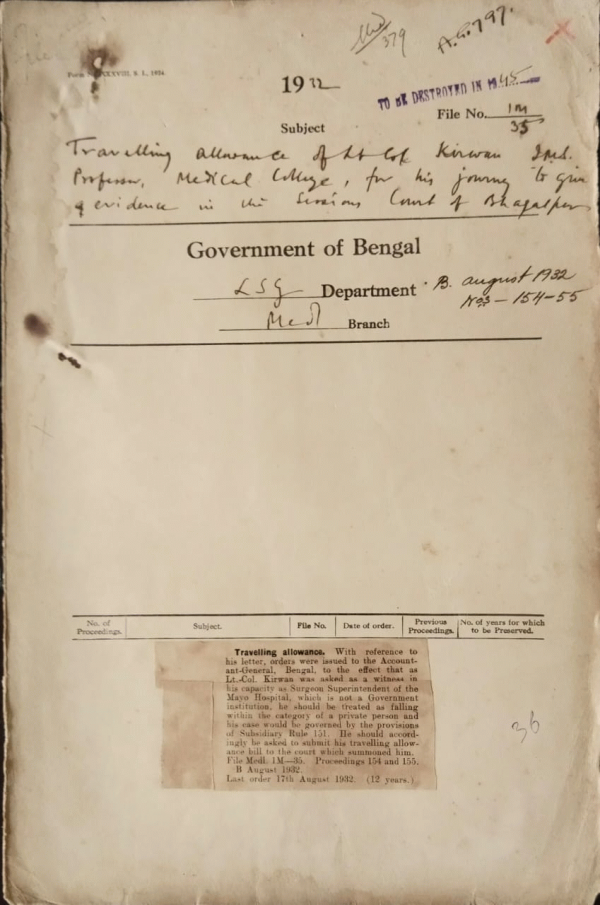 379
A.G. 797.
1932
TO BE DESTROYED IN 1945
File No. 1M/35
Subject
Travelling allowance of Lt Col Kirwan I.M.S.
Professor, Medical College, for his journey to give
evidence in the Sessions Court of Bhagalpur
Government of Bengal
LSG Department
B. August 1932
Nos - 154-55
Medl Branch
No. of Proceedings. Subject. File No. Date of order. Previous Proceedings. No. of years for which to be Preserved.
Travelling allowance. With reference to
his letter, orders were issued to the Account-
ant-General, Bengal, to the effect that as
Lt.-Col. Kirwan was asked as a witness in
his capacity as Surgeon Superintendent of the
Mayo Hospital, which is not a Government
institution, he should be treated as falling
within the category of a private person and
his case would be governed by the provisions
of Subsidiary Rule 151. He should accord-
ingly be asked to submit his travelling allow-
ance bill to the court which summoned him.
File Medl. 1M—35. Proceedings 154 and 155.
B August 1932.
Last order 17th August 1932. (12 years.)
36